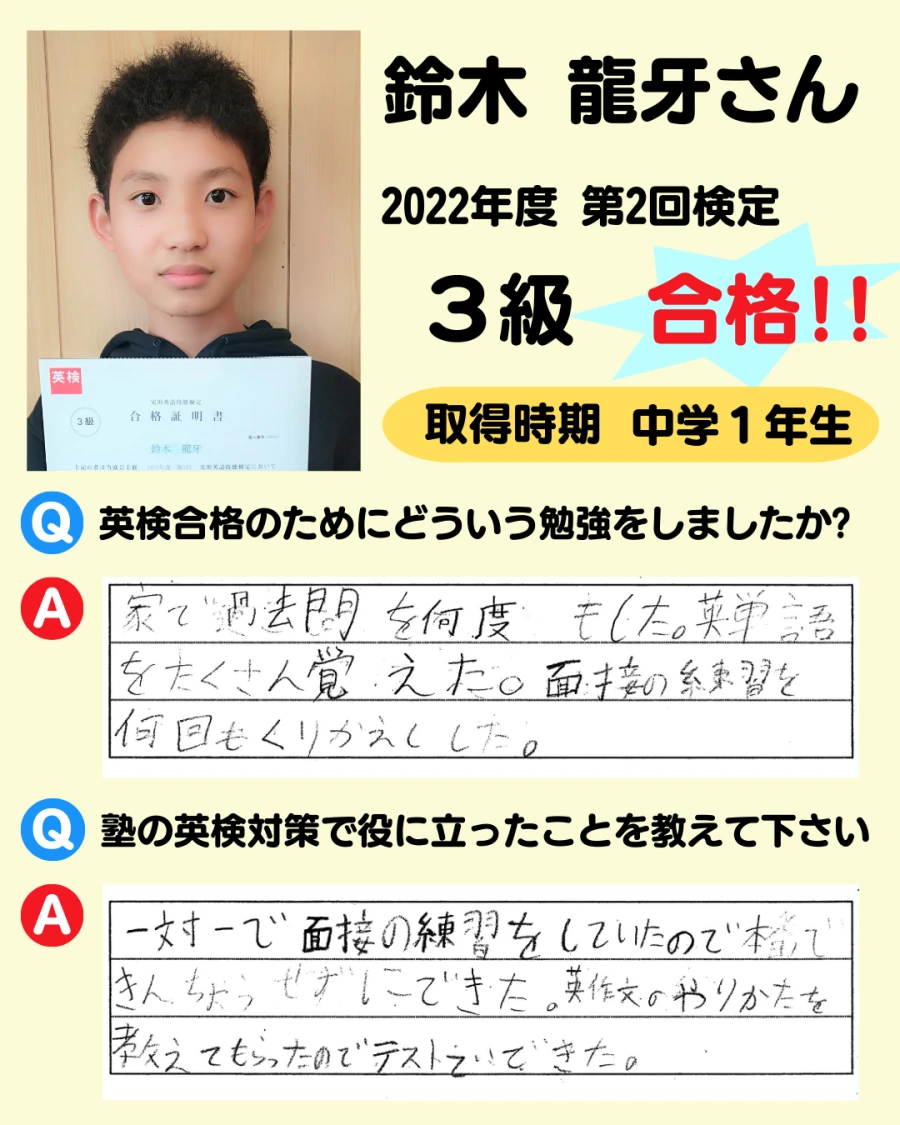 鈴木 龍牙さん
2022年度 第2回検定
3級 合格!!
取得時期 中学1年生
英検
3級
実用英語技能検定
合格証明書
鈴木 龍牙
Q 英検合格のためにどういう勉強をしましたか?
A 家で過去問を何度もした。英単語
をたくさん覚えた。面接の練習を
何回もくりかえしした。
Q 塾の英検対策で役に立ったことを教えて下さい
A 一対一で面接の練習をしていたので本番で
きんちょうせずにできた。英作文のやりかたを
教えてもらったのでテストで
できた。